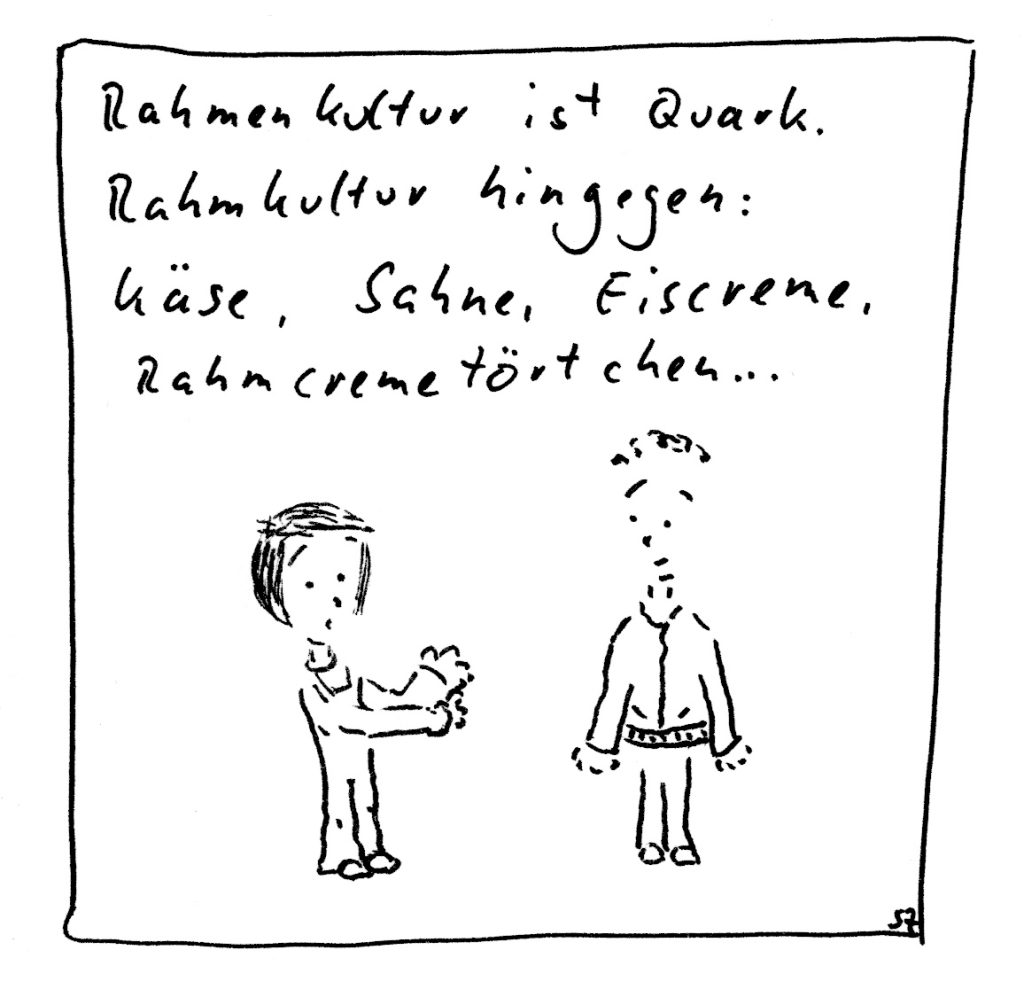 Rahmenkultur ist Quark.
Rahmkultur hingegen:
Käse, Sahne, Eiscreme,
Rahmcremetörtchen...